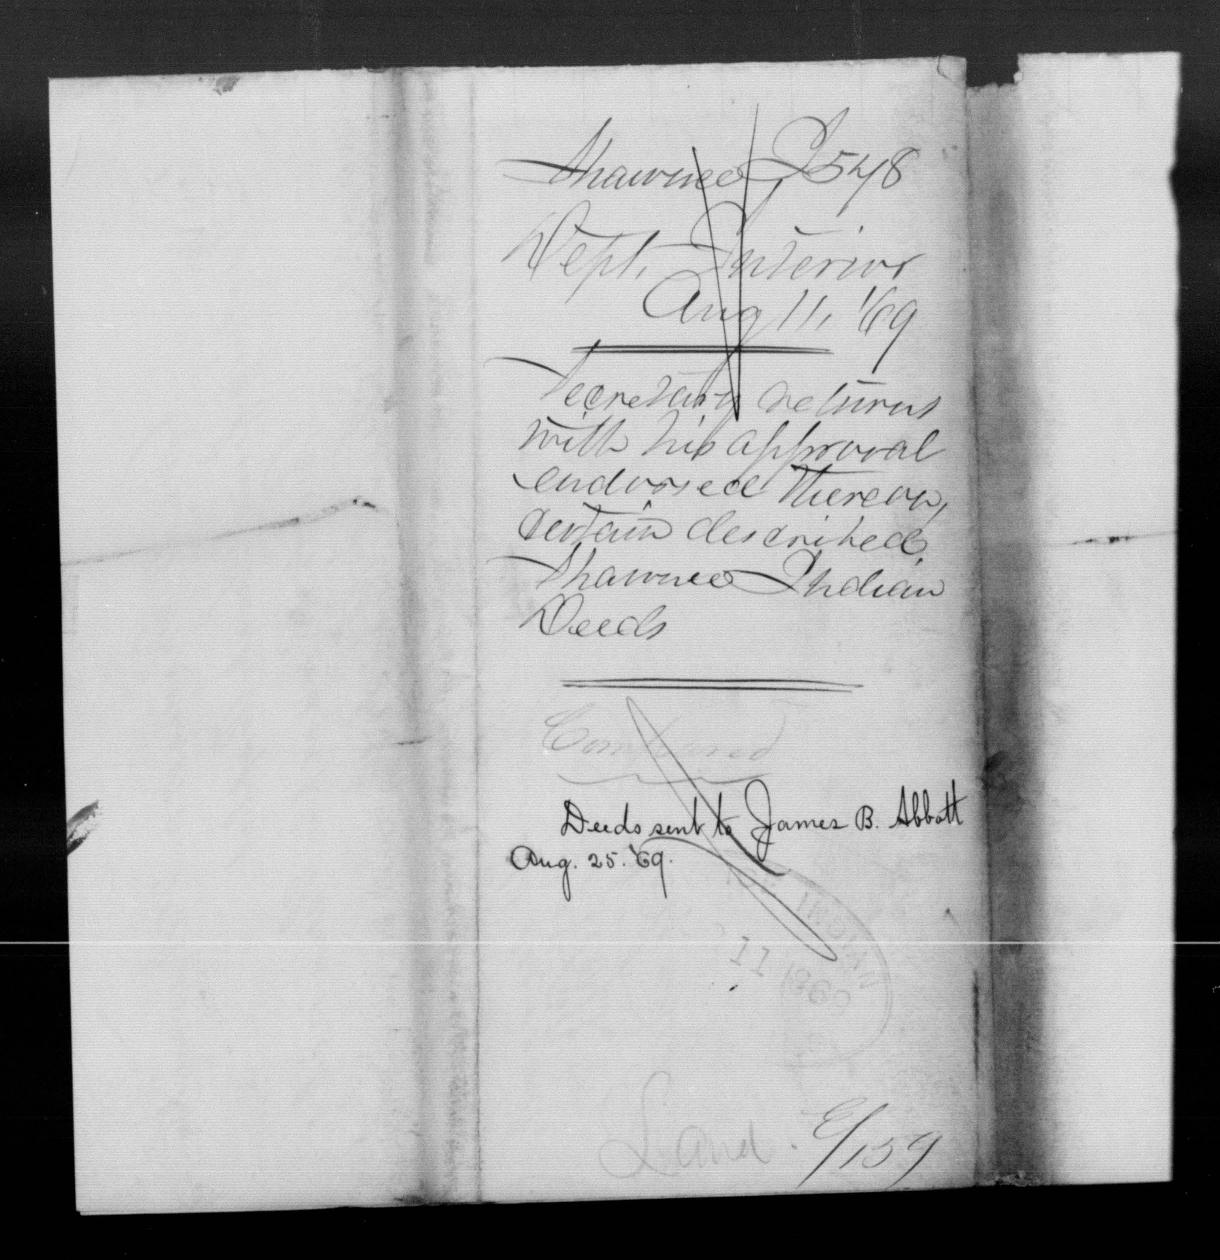 Shawnee I 548
Dept. Interior
Aug 11, '69
Secretary returns
with his approval
endorsed thereon,
certain described
Shawnee Indian
Deeds
Compared
Deeds sent to James B. Abbott
Aug. 25. '69.
INDIAN
11 1869
Land.